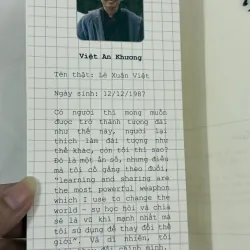 Việt An Khương
Tên thật: Lê Xuân Việt
Ngày sinh: 12/12/1987
Có người thì mong muốn
được trở thành tượng đài
như thế này, người lại
thích làm đài tượng như
thế khác, còn tôi thì sao?
Đó là một ẩn số, nhưng điều
mà tôi cố gắng theo đuổi,
"learning and sharing are
the most powerful weapon
which I use to change the
world – sự học hỏi và chia
sẻ là vũ khí mạnh nhất mà
tôi sử dụng để thay đổi thế
giới". Và dĩ nhiên, tôi
đổi chính mình